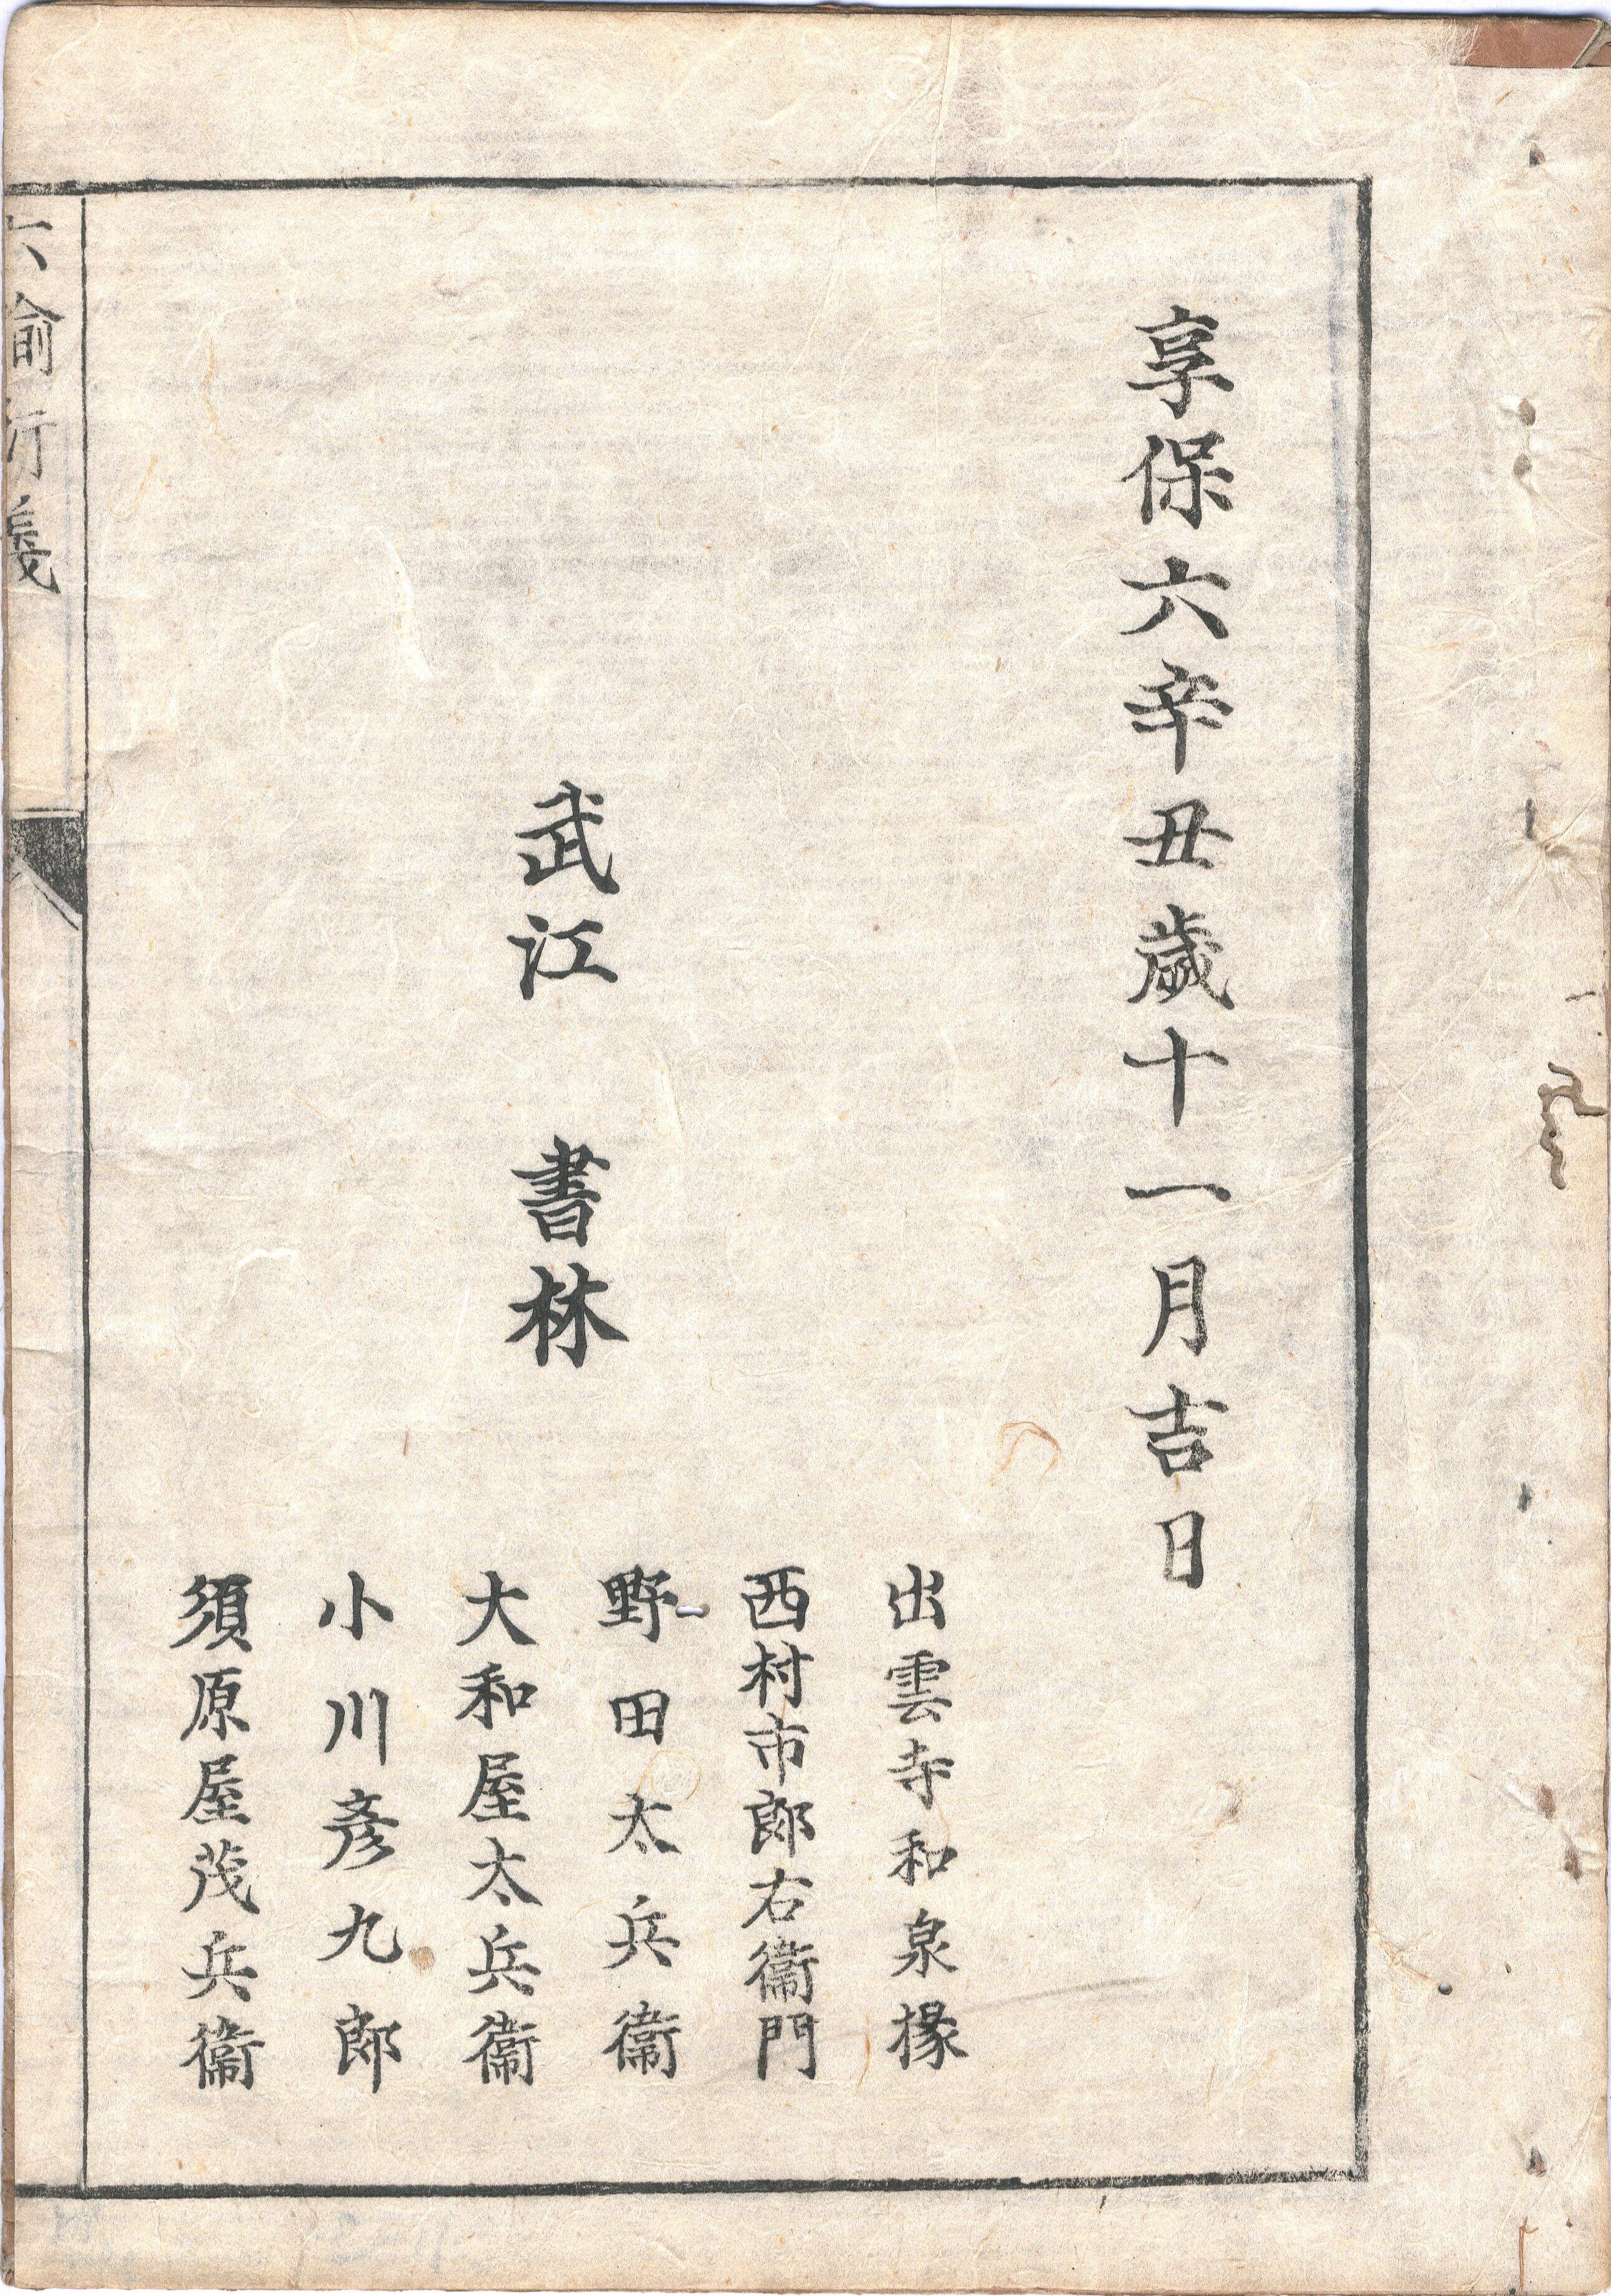 享保六辛丑歲十一月吉日
武江　書林
出雲寺和泉掾
西村市郎右衞門
野田太兵衞
大和屋太兵衞
小川彥九郎
須原屋茂兵衞
六諭衍義